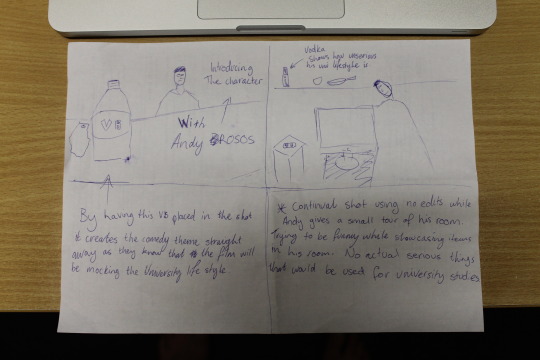 Introducing
The character
With
Andy ROSOS
V
Vodka
shows how unserious
his uni lifestyle is
By having this VB placed in the shot
it creates the comedy theme straight
away as they know that the film will
be mocking the University life style
* Continual shot using no edits while
Andy gives a small tour of his room.
Trying to be funny while showcasing items
in his room. No actual serious things
that would be used for university studies